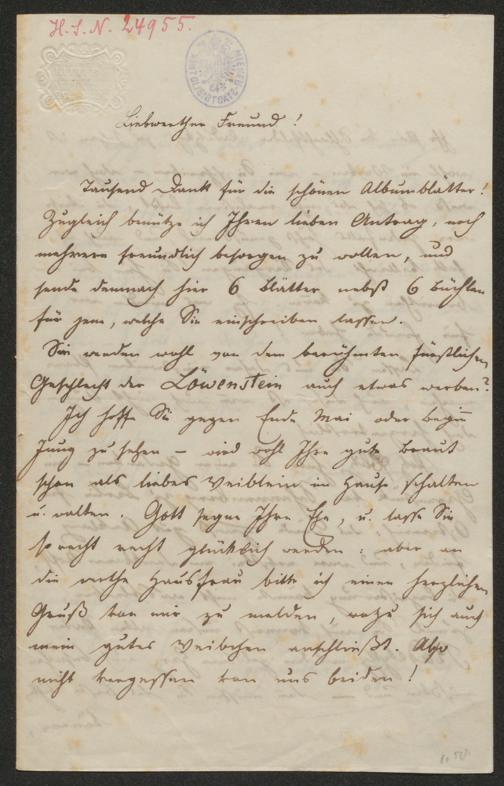 H. I. N. 24955.
Liebwerther Freund!
Tausend Dank für die schönen Albumblätter!
Zugleich benütze ich Ihren lieben Antrag, noch
mehrere freundlich besorgen zu wollen, und
sende demnach hier 6 Blätter nebst 6 Büchlen
für jene, welche Sie einschreiben lassen.
Sie werden wohl von dem berühmten fürstlichen
Geschlecht der Löwenstein auch etwas werben?
Ich hoffe Sie gegen Ende Mai oder Beginn
Juny zu sehen – wird wohl Ihre gute Braut
schon als liebes Weiblein im Hause schalten
u. walten. Gott segne Ihre Ehe, u. lasse Sie
so recht recht glücklich werden; aber an
die werthe Hausfrau bitte ich einen herzlichen
Gruß von mir zu melden, wozu sich auch
mein gutes Weibchen anschließt. Also
nicht vergessen von uns beiden!